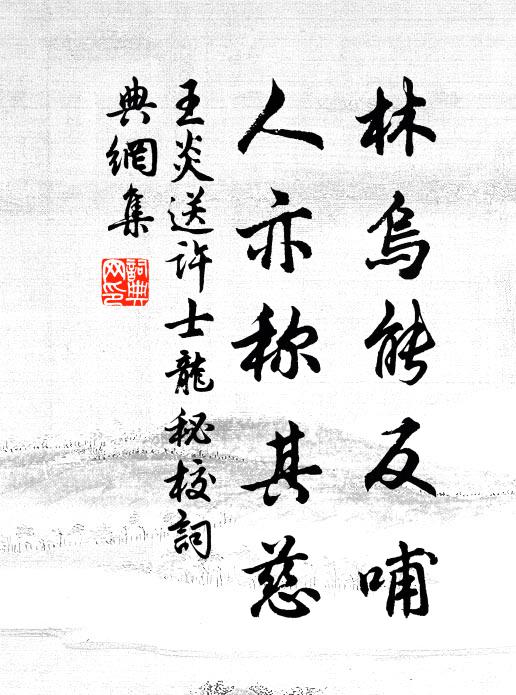 林烏能反哺
人亦称其慈
王炎送许士龍秘校詞
典網集
詞典
网印